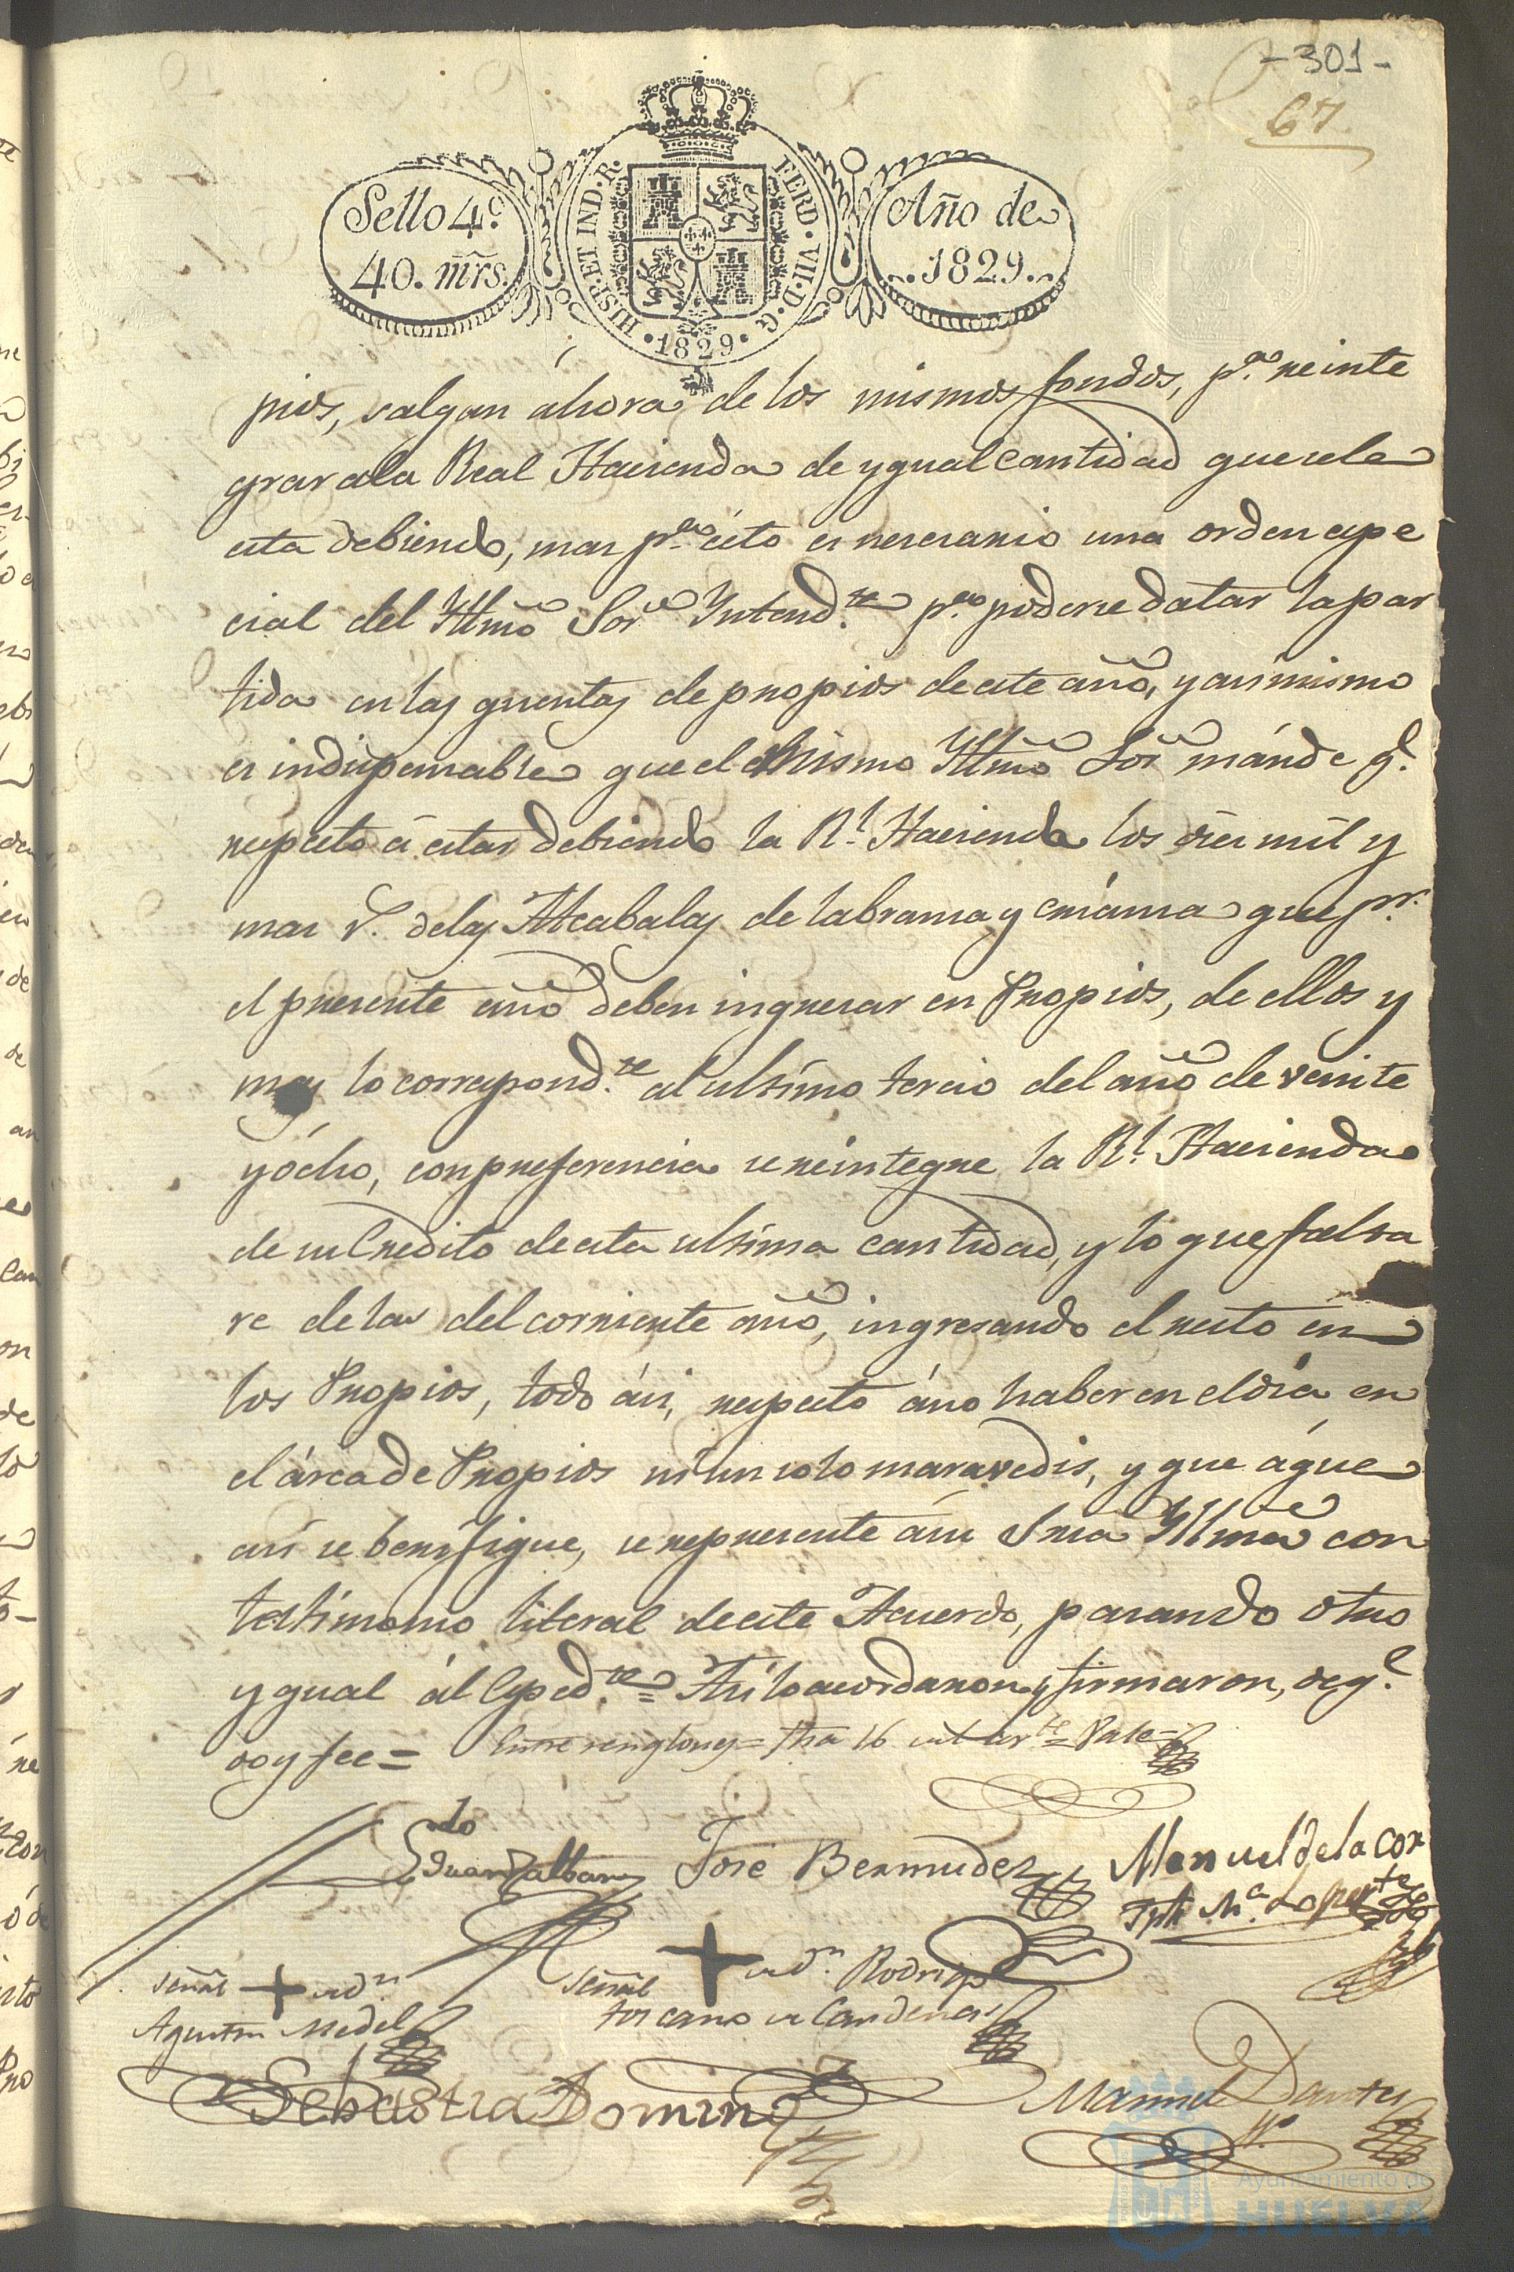 -301-
67
Sello 4º
40. mrs.
HISP. ET IND. R.
FERD. VII. D. G.
1829
Año de
1829.
pios, salgan áhora de los mismos fondos, pª reinte
grar ala Real Hacienda de ygual cantidad que sele
esta debiendo, mas pª esto es nesesario una orden espe
cial del Yllmô Sor Yntend.te pª poderse datar la par
tida en las quentas de propios de este año, y asimismo
es indispensable que el mismo Yllmô Sor mánde q.e
respecto á estar debiendo la Rl. Hacienda los dies mil y
mas rs. delas Alcabalas de labransa y criansa que pr.
el presente año deben ingresar en Propios, de ellos y
mas lo correspond.te al ultimo tercio del año de veinte
y ócho, con preferencia se reintegre la Rl. Hacienda
de su Credito de esta ultima cantidad, y lo que falta
re de las del corriente año, ingresando el resto en
los Propios, todo ási, respecto áno haber en el dia en
el árca de Propios ni un solo maravedis, y que áque
asi se berifique, se represente ási Sria Yllmâ con
testimonio literal de este Acuerdo, pasando otro
ygual ál Exped.te = Asi lo acordaron y firmaron, deq.e
doy fee =
Entre renglones = fha 16 del corr.te = Vale =
Ldo
Juan Galban
José Bermudez
Manuel de la Cor
te
Jph Mª Lopez
Señal + de dn
Agustin Medel
Señal + de dn. Rodrigo
Toscano de Cardenas
Sebastian Domin
Manuel Dantes
Ayuntamiento de
HUELVA